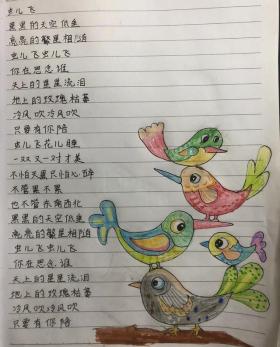 虫儿飞
黑黑的天空低垂
亮亮的繁星相随
虫儿飞虫儿飞
你在思念谁
天上的星星流泪
地上的玫瑰枯萎
冷风吹冷风吹
只要有你陪
虫儿飞花儿睡
一双又一对才美
不怕天黑只怕心碎
不管累不累
也不管东南西北
黑黑的天空低垂
亮亮的繁星相随
虫儿飞虫儿飞
你在思念谁
天上的星星流泪
地上的玫瑰枯萎
冷风吹冷风吹
只要有你陪